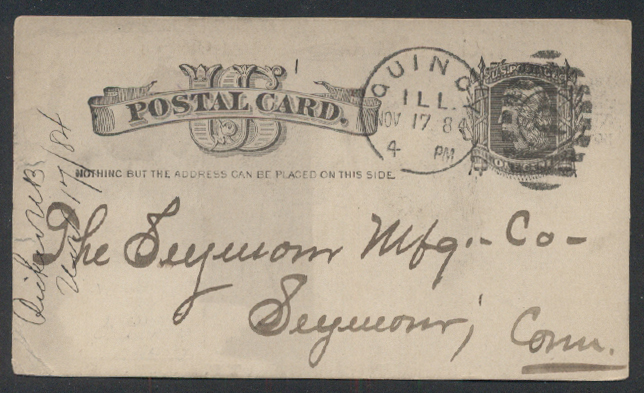 US
POSTAL CARD.
NOTHING BUT THE ADDRESS CAN BE PLACED ON THIS SIDE.
QUINCY
ILL.
NOV 17 84
4 PM
The Seymour Mfg. Co
Seymour,
Conn.
17/84